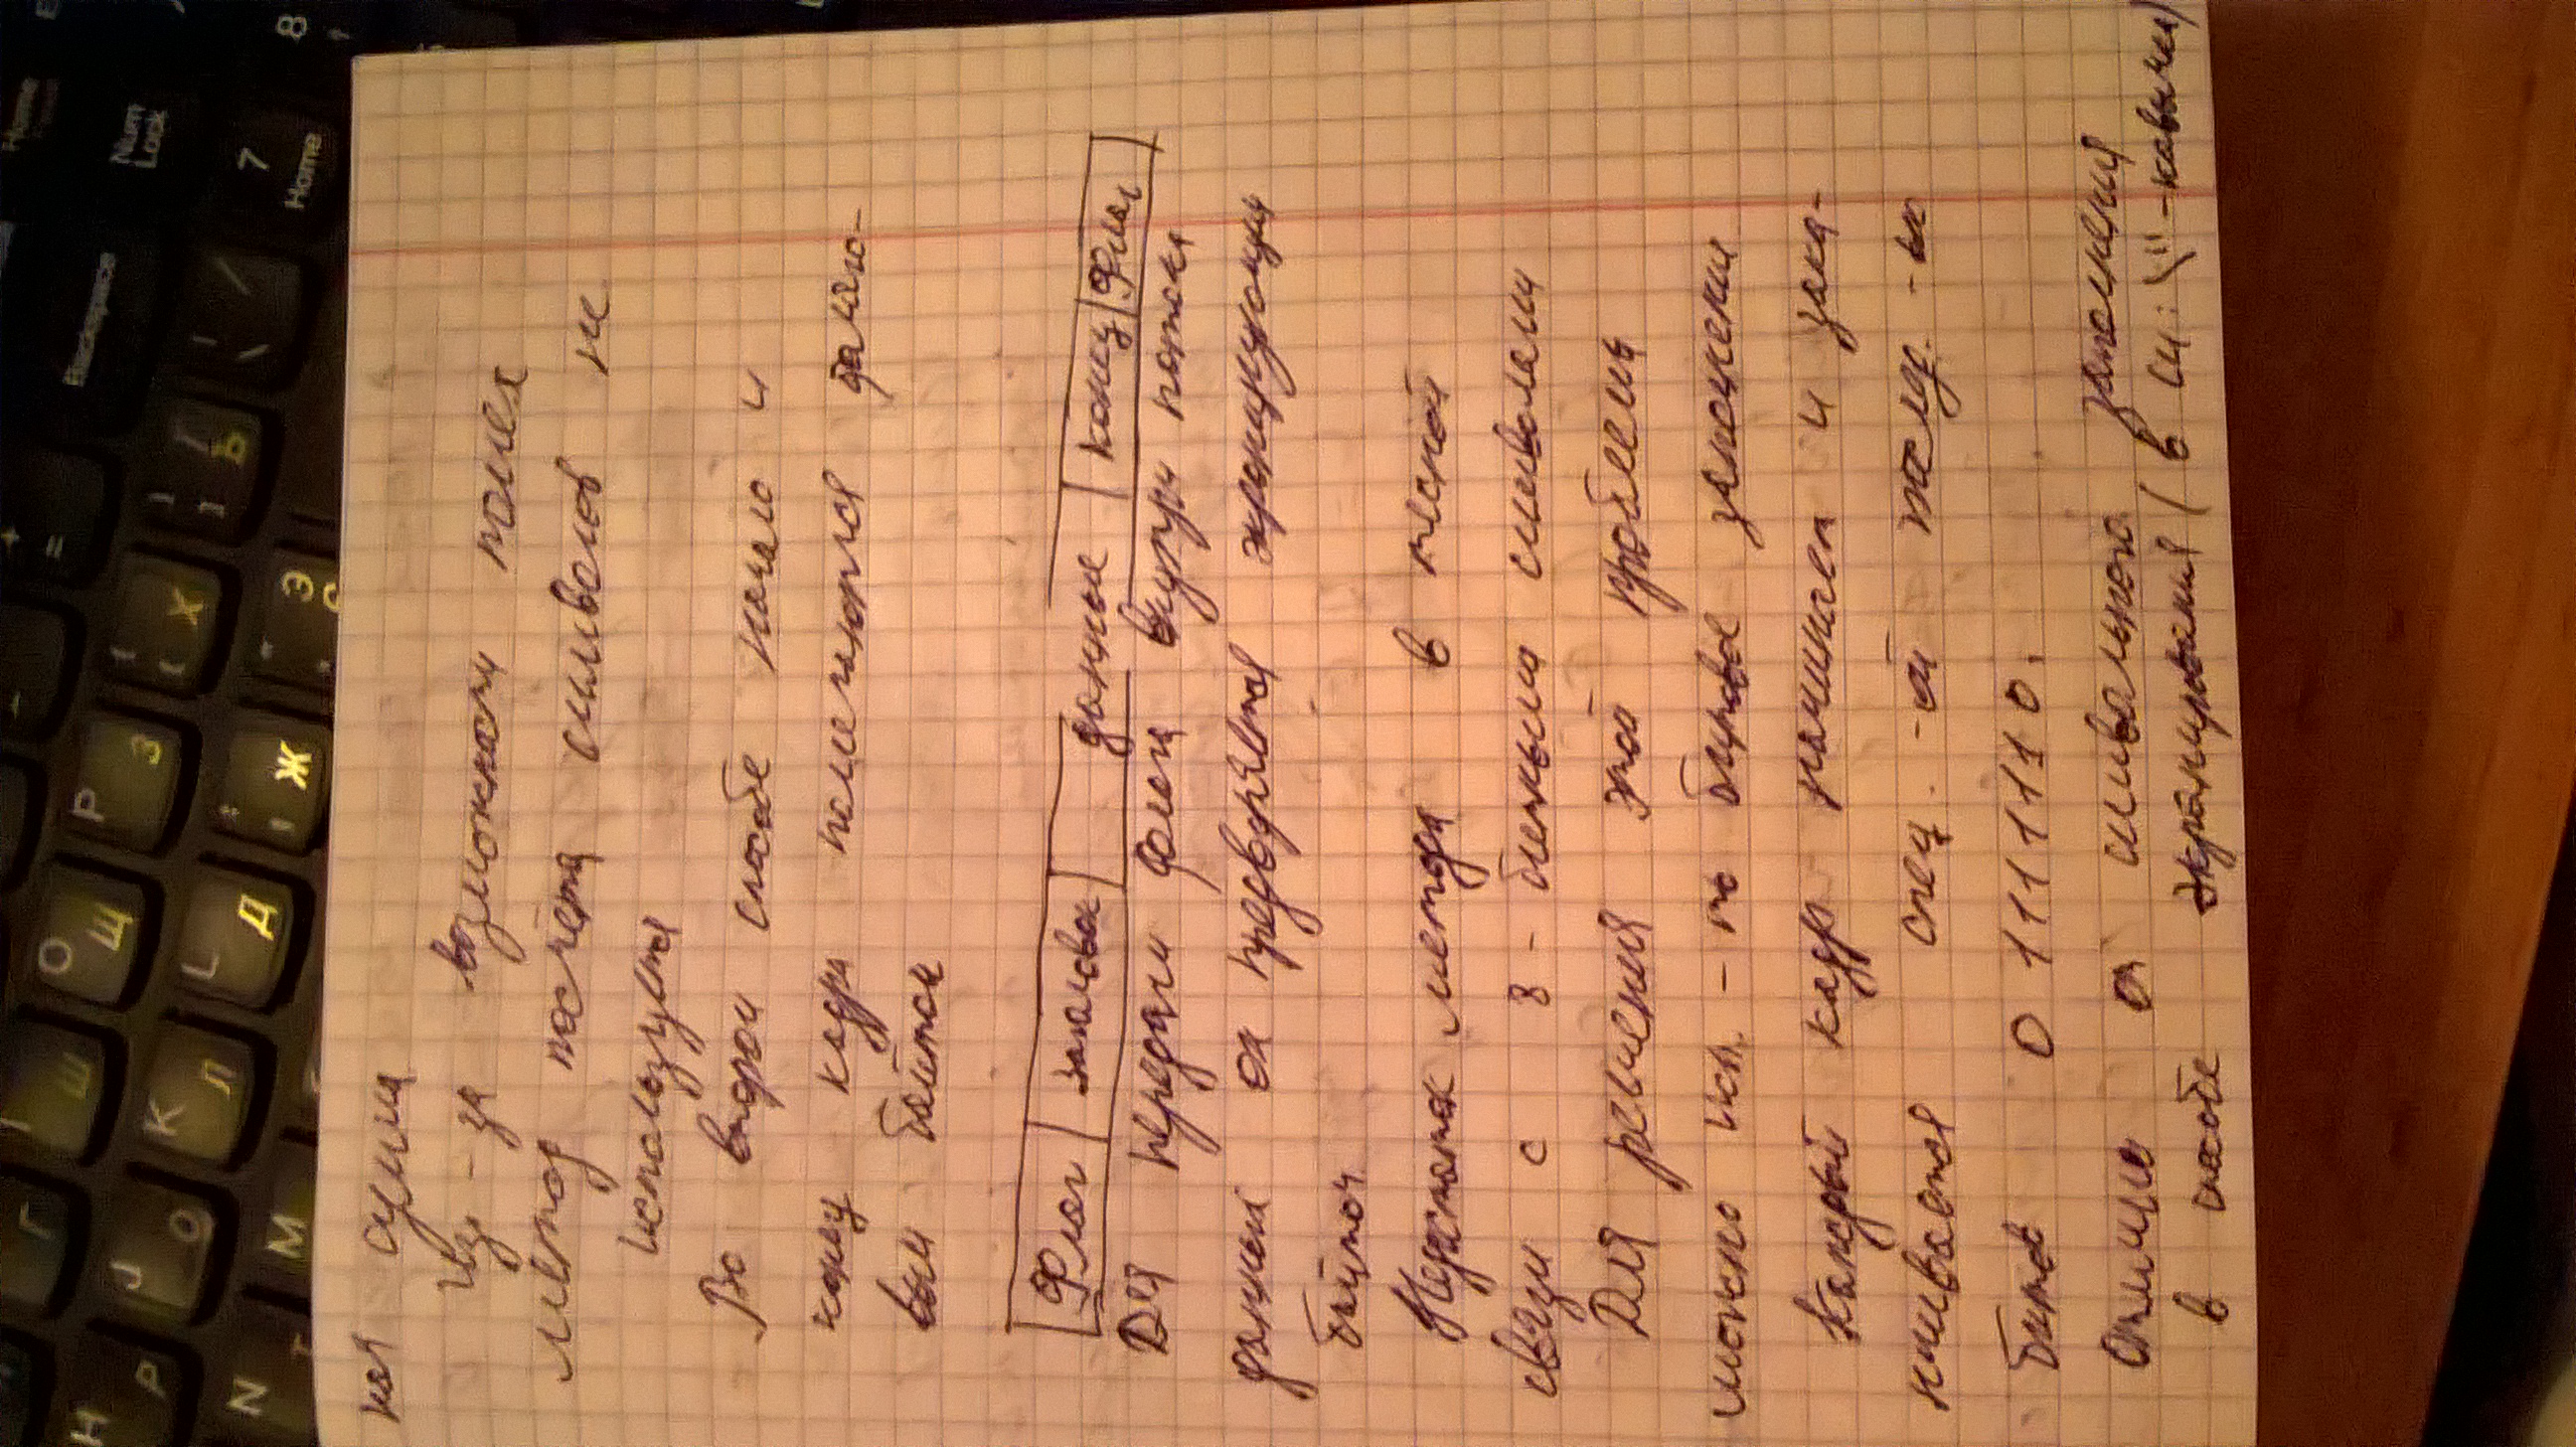 Г Ш O Щ P З { [ Х } ] Ъ + = Backspace Home Num Lock
Н Р J О K Л L Д : ; Ж " ' Э | \ / 7 Home 8
N Т M
ная сумма
Из-за возможности помех
метод подсчёта символов не
используется
Во втором способе начало и
конец кадра помечаются флаго-
вым байтом
Флаг Заголовок данные конец Флаг
Для передачи флага внутри потока
данных он предворяется экранирующим
байтом.
Недостаток метода в тесной
связи с 8-битными символами
Для решения этой проблемы
можно исп.-ть битовое заполнение
Каждый кадр начинает и зака-
нчивается спец.-ой послед.-ью
битов 01111110.
Отличие от символьного заполнения
в способе экранирования (в си: \" - кавычка)